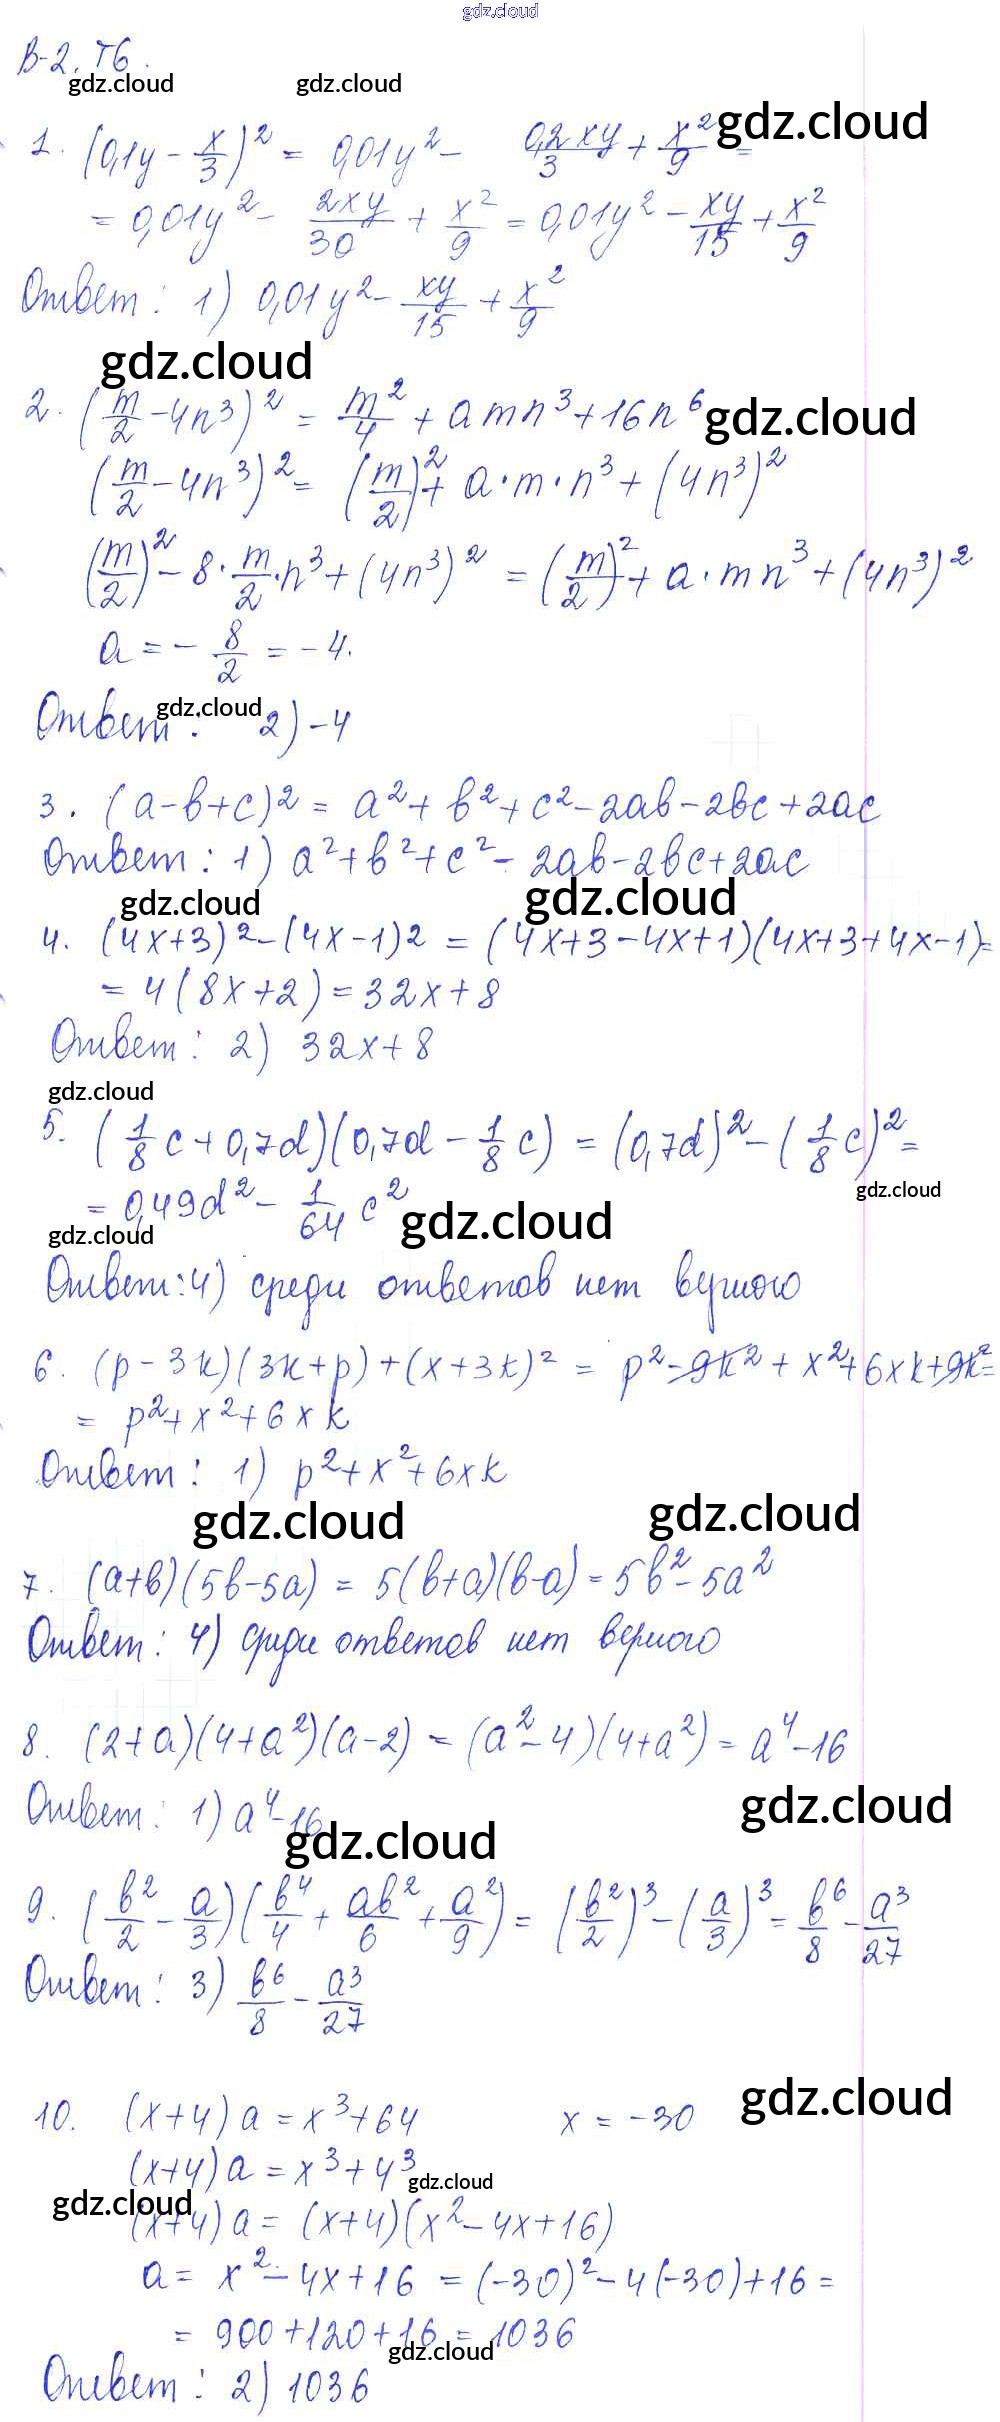 gdz.cloud
В-2. Т6.
gdz.cloud gdz.cloud
gdz.cloud
1. (0,1y - x/3)² = 0,01y² - 0,2xy/3 + x²/9 =
= 0,01y² - 2xy/30 + x²/9 = 0,01y² - xy/15 + x²/9
Ответ: 1) 0,01y² - xy/15 + x²/9
gdz.cloud
2. (m/2 - 4n³)² = m²/4 + amn³ + 16n⁶
gdz.cloud
(m/2 - 4n³)² = (m/2)² + a·m·n³ + (4n³)²
(m/2)² - 8·m/2·n³ + (4n³)² = (m/2)² + a·mn³ + (4n³)²
a = - 8/2 = -4.
gdz.cloud
Ответ: 2) -4
3. (a-b+c)² = a² + b² + c² - 2ab - 2bc + 2ac
Ответ: 1) a² + b² + c² - 2ab - 2bc + 2ac
gdz.cloud gdz.cloud
4. (4x+3)² - (4x-1)² = (4x+3-4x+1)(4x+3+4x-1) =
= 4(8x+2) = 32x+8
Ответ: 2) 32x+8
gdz.cloud
5. (1/8 c + 0,7d)(0,7d - 1/8 c) = (0,7d)² - (1/8 c)² =
gdz.cloud
= 0,49d² - 1/64 c²
gdz.cloud gdz.cloud
Ответ: 4) среди ответов нет верного
6. (p-3k)(3k+p) + (x+3k)² = p² - 9k² + x² + 6xk + 9k² =
= p² + x² + 6xk
Ответ: 1) p² + x² + 6xk
gdz.cloud gdz.cloud
7. (a+b)(5b-5a) = 5(b+a)(b-a) = 5b² - 5a²
Ответ: 4) среди ответов нет верного
8. (2+a)(4+a²)(a-2) = (a²-4)(4+a²) = a⁴-16
gdz.cloud
Ответ: 1) a⁴-16
gdz.cloud
9. (b²/2 - a/3)(b⁴/4 + ab²/6 + a²/9) = (b²/2)³ - (a/3)³ = b⁶/8 - a³/27
Ответ: 3) b⁶/8 - a³/27
10. (x+4)a = x³+64 x = -30
gdz.cloud
(x+4)a = x³+4³
gdz.cloud
gdz.cloud
(x+4)a = (x+4)(x²-4x+16)
a = x²-4x+16 = (-30)²-4(-30)+16 =
= 900+120+16 = 1036
gdz.cloud
Ответ: 2) 1036